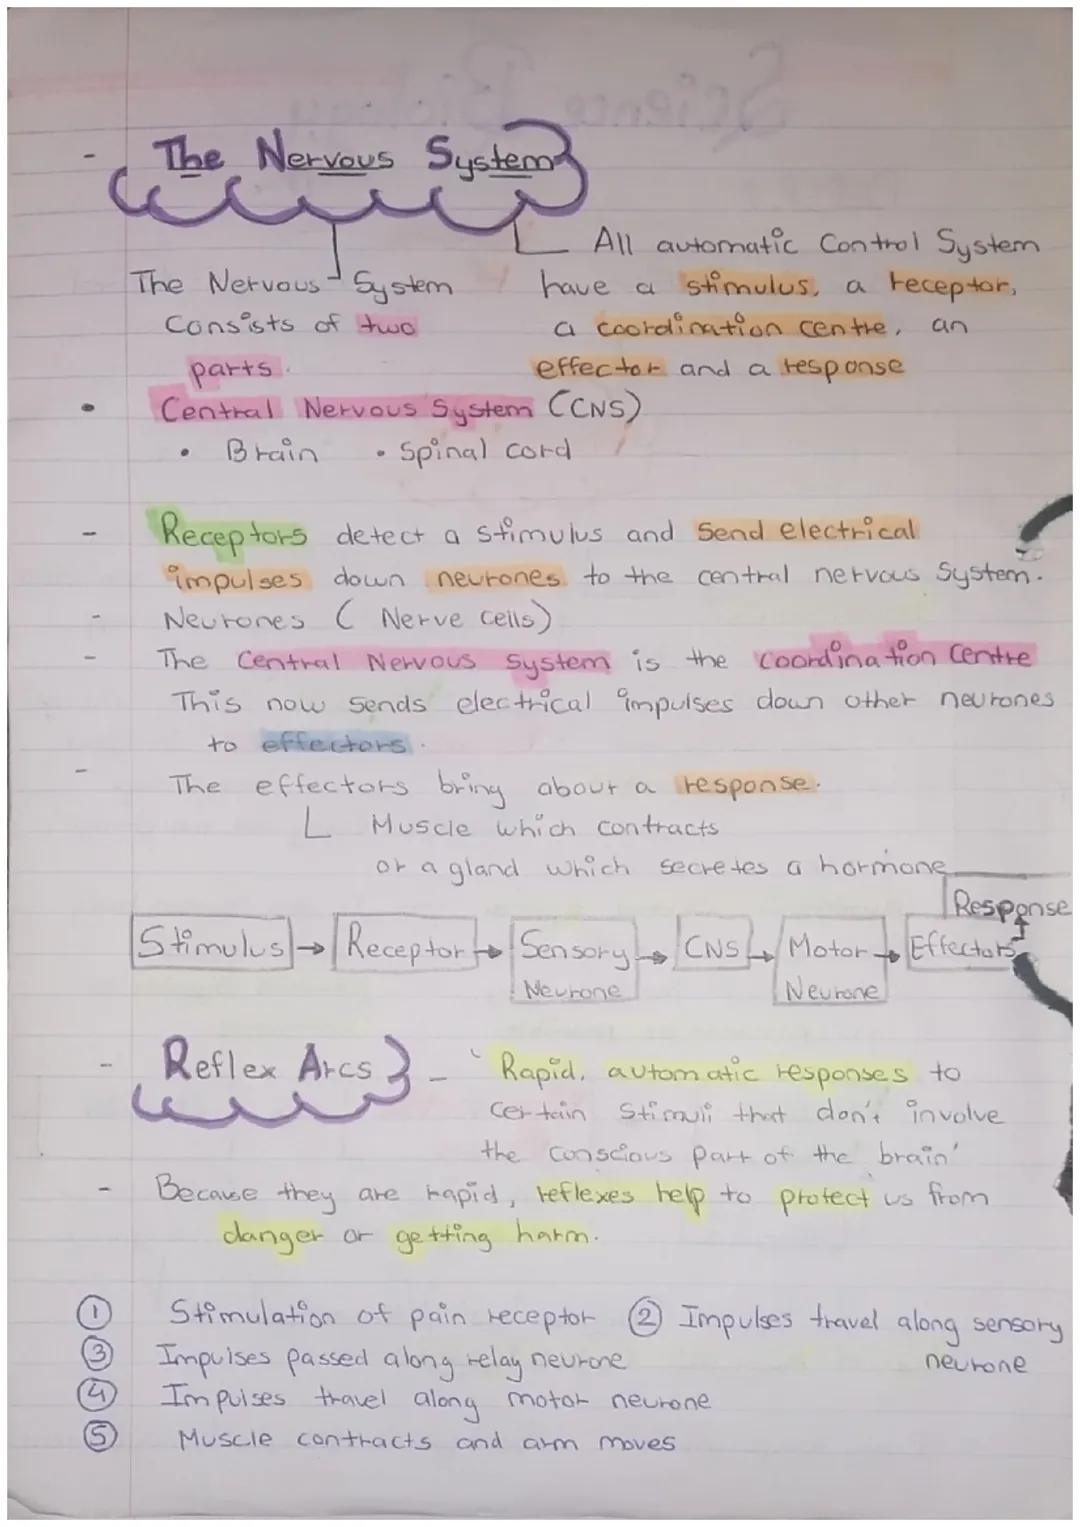 - The Nervous System
The Nervous System
Consists of two
parts.
All automatic Control System
have a stimulus, a receptor,
a coordination centre, an
effector and a response
• Central Nervous System (CNS)
• Brain • Spinal cord
- Receptors detect a stimulus and send electrical
impulses down neurones to the central nervous System.
- Neurones (Nerve cells)
- The Central Nervous System is the coordination Centre
This now sends electrical impulses down other neurones
to effectors.
- The effectors bring about a response.
Muscle which contracts
or a gland which secretes a hormone
Response
Stimulus → Receptor → Sensory Neurone → CNS → Motor Neurone → Effectors
- Reflex Arcs - 'Rapid, automatic responses to
certain stimuli that don't involve
the conscious part of the brain'
- Because they are rapid, reflexes help to protect us from
danger or getting harm.
① Stimulation of pain receptor ② Impulses travel along sensory
neurone
③ Impulses passed along relay neurone
④ Impulses travel along motor neurone
⑤ Muscle contracts and arm moves